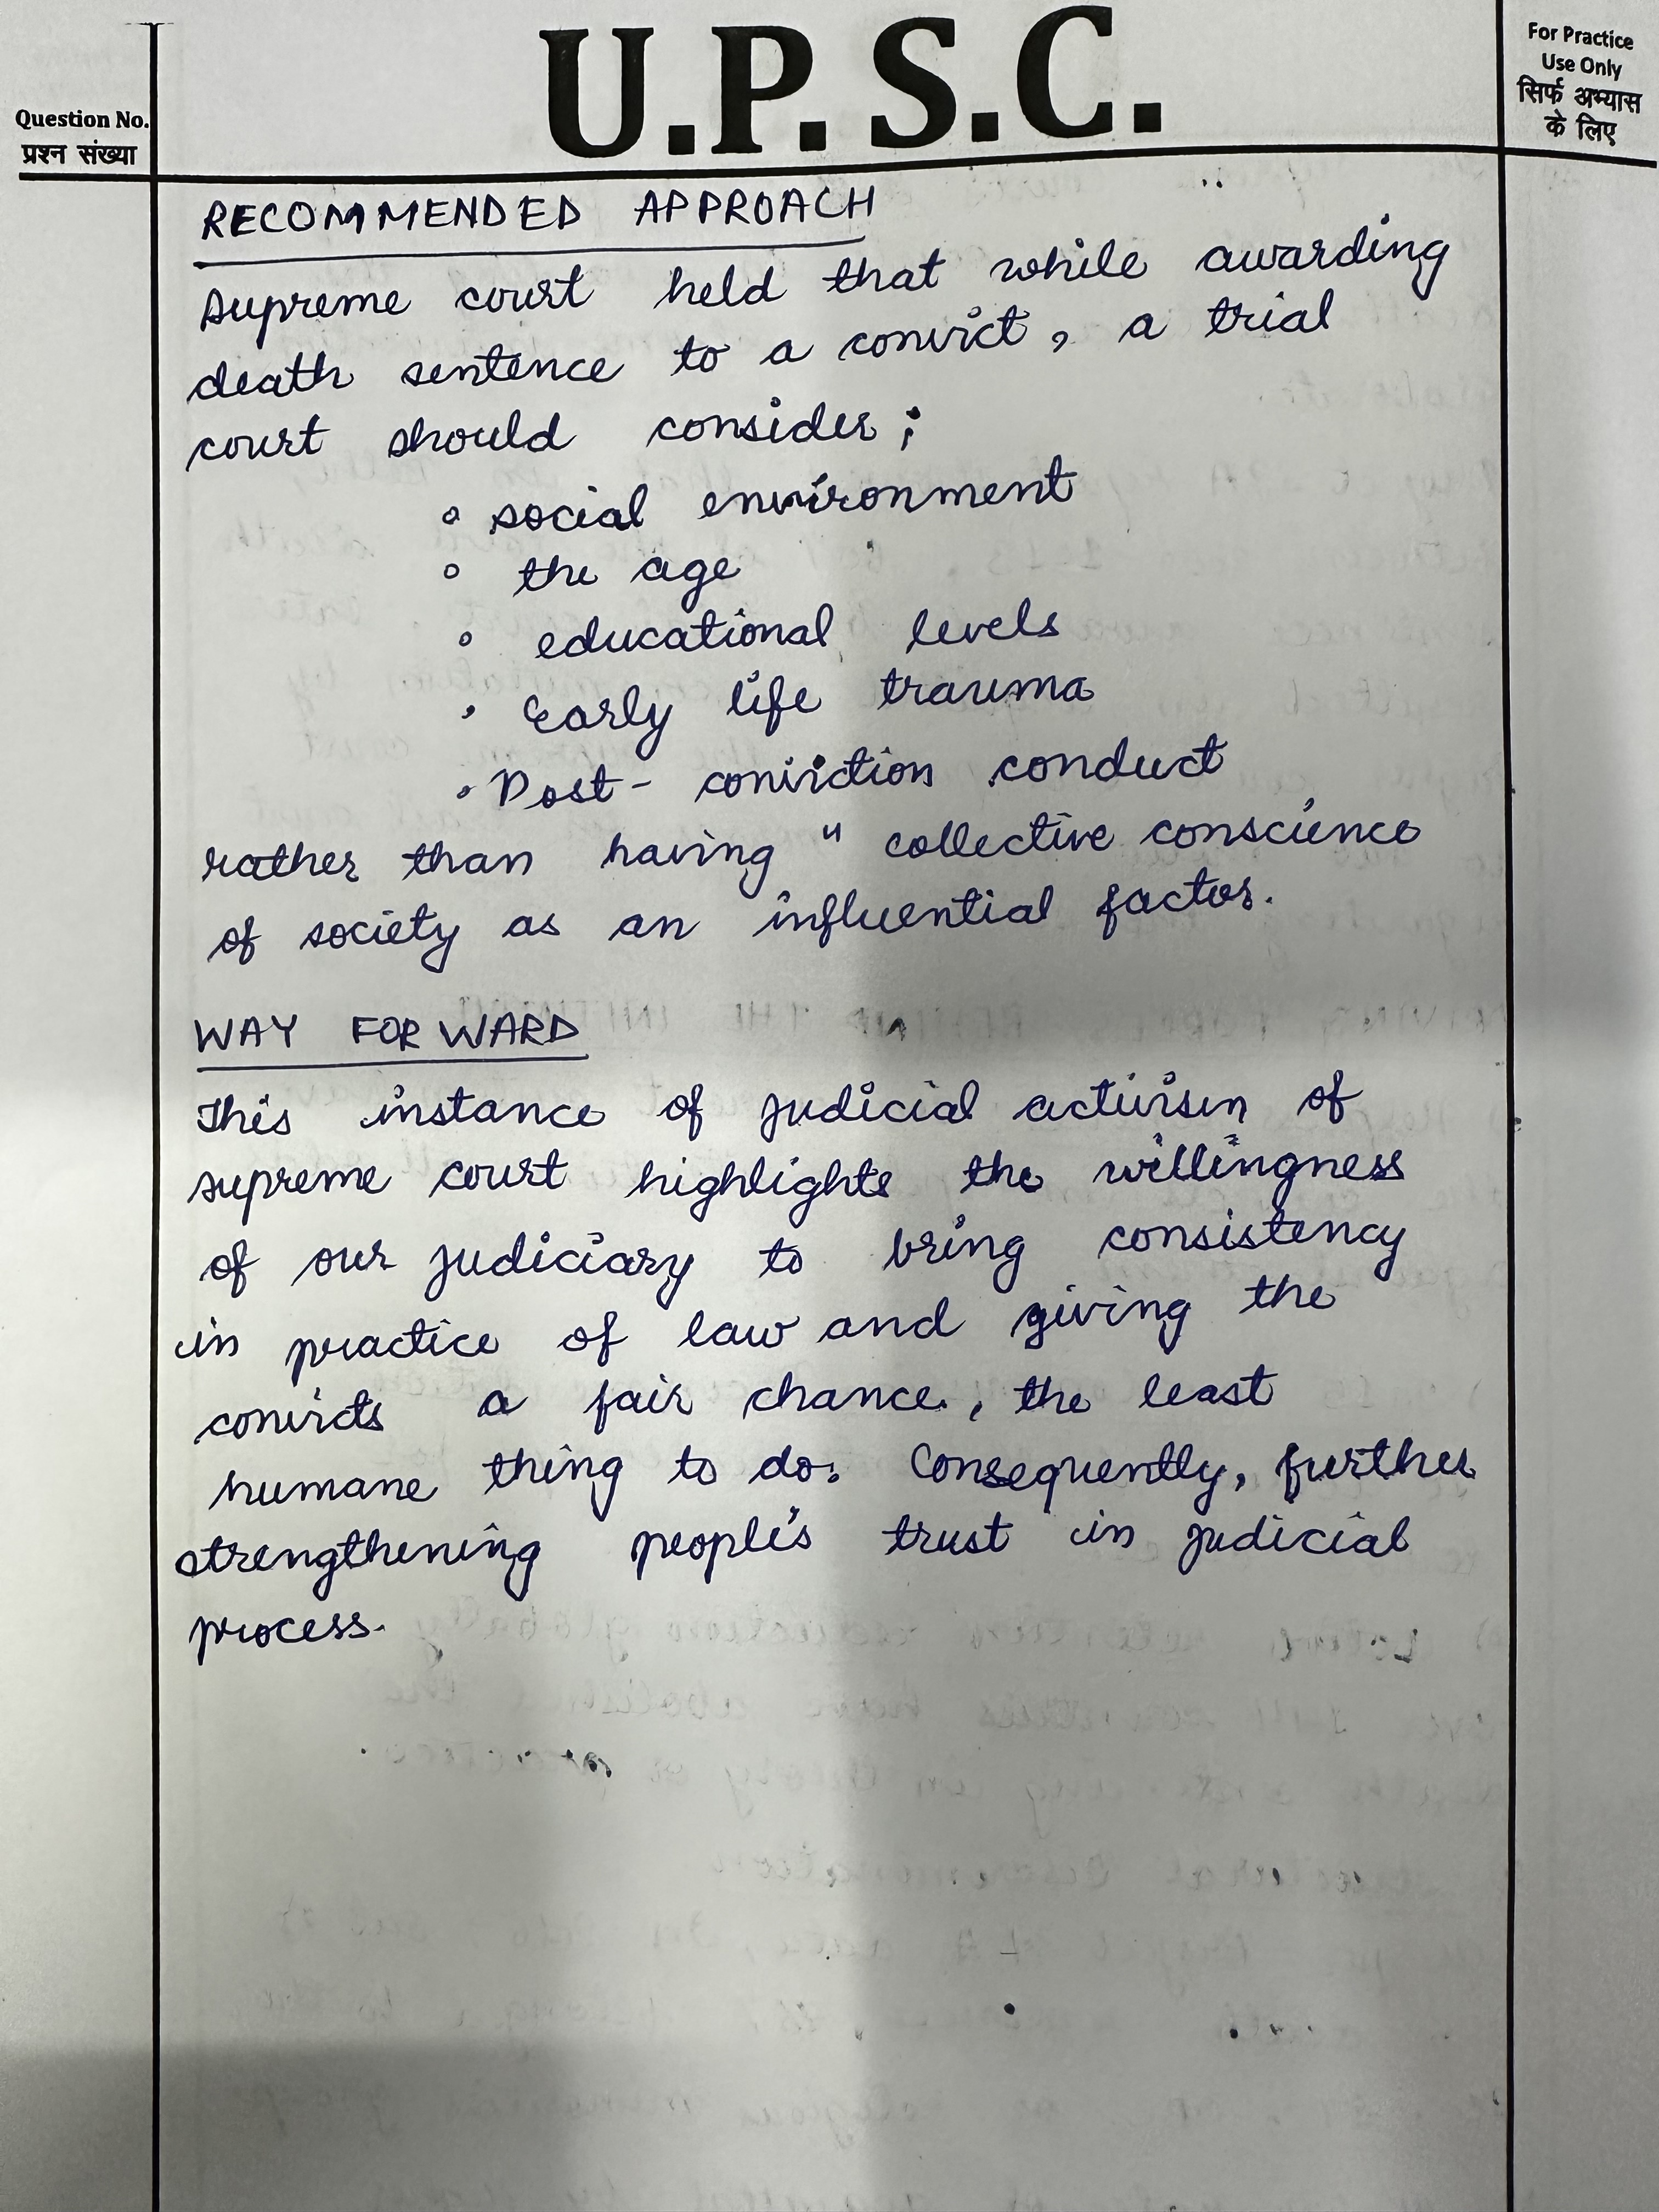 U.P.S.C.
For Practice
Use Only
सिर्फ अभ्यास
के लिए
Question No.
प्रश्न संख्या
RECOMMENDED APPROACH
Supreme court held that while awarding
death sentence to a convict, a trial
court should consider;
° social environment
° the age
° educational levels
• Early life trauma
• Post-conviction conduct
rather than having " collective conscience
of society as an influential factor.
WAY FORWARD
This instance of judicial activism of
supreme court highlights the willingness
of our judiciary to bring consistency
in practice of law and giving the
convicts a fair chance., the least
humane thing to do. Consequently, further
strengthening people's trust in judicial
process.